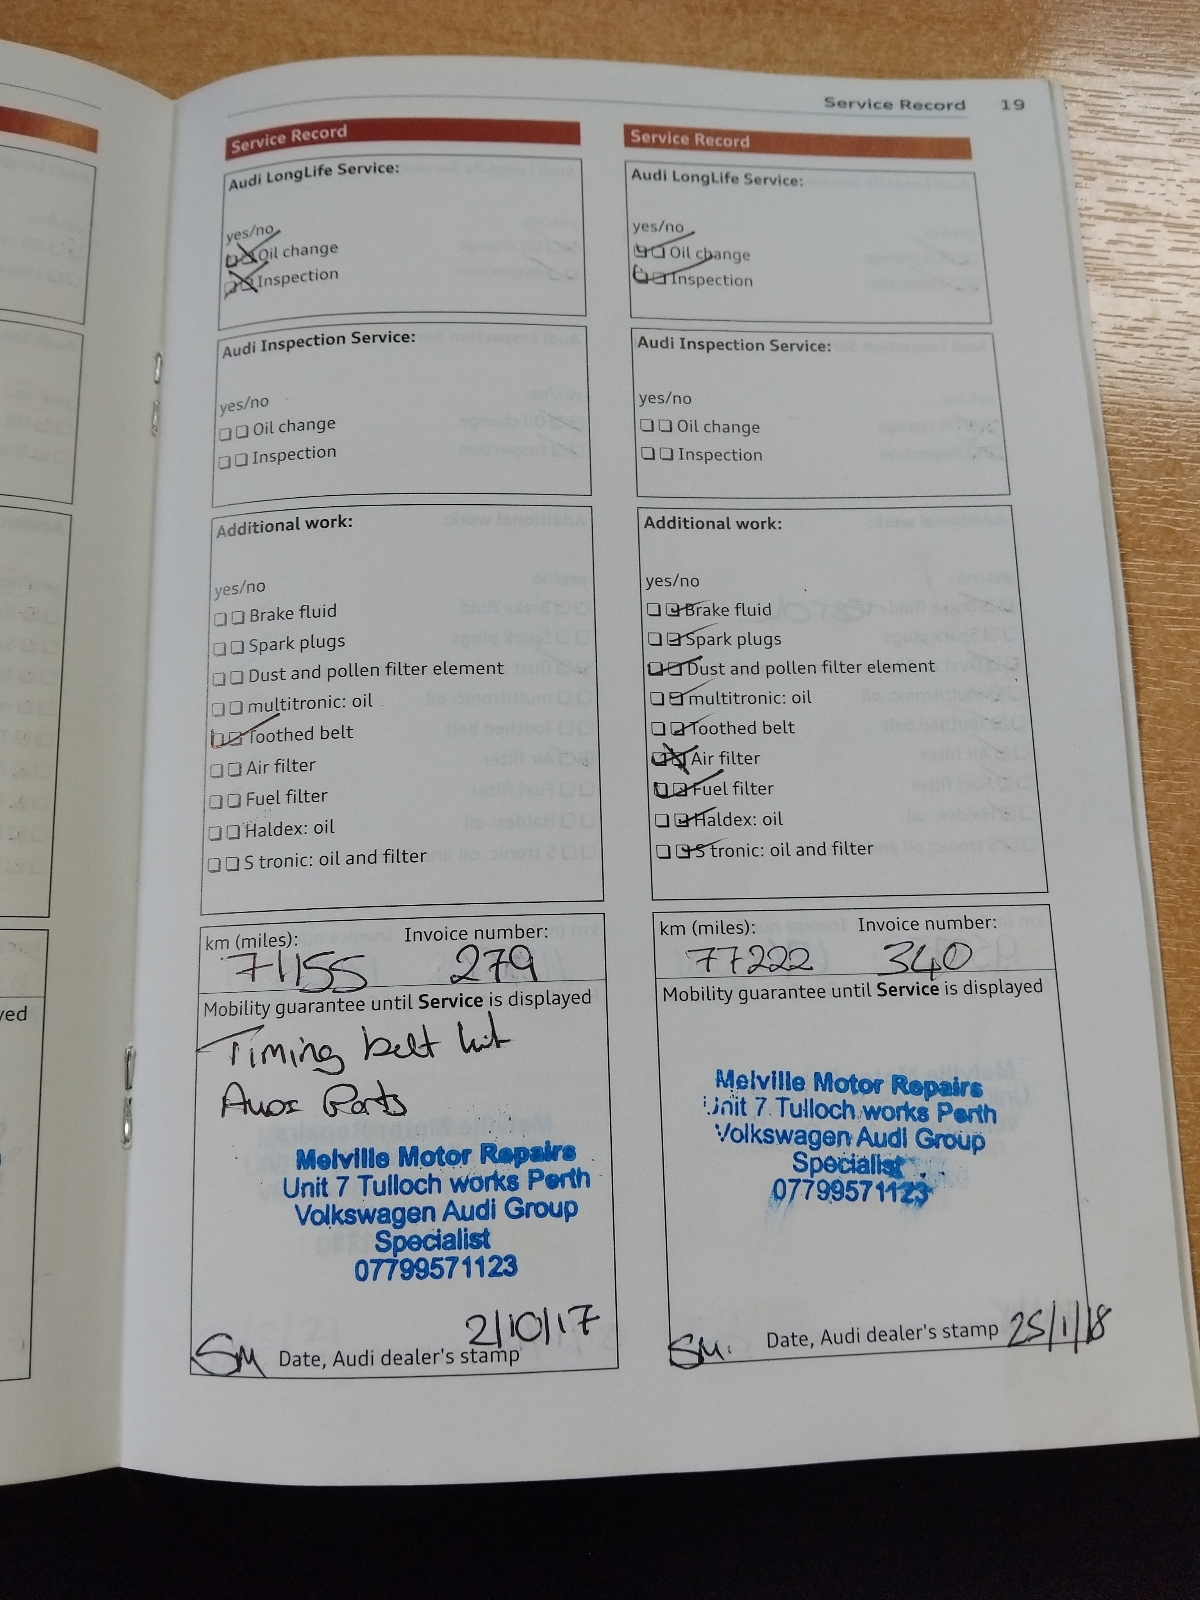 Service Record 19
Service Record
Audi LongLife Service:
yes/no
Oil change
Inspection
Audi Inspection Service:
yes/no
Oil change
Inspection
Additional work:
yes/no
Brake fluid
Spark plugs
Dust and pollen filter element
multitronic: oil
Toothed belt
Air filter
Fuel filter
Haldex: oil
S tronic: oil and filter
km (miles): Invoice number:
71155 279
Mobility guarantee until Service is displayed
Timing belt kit
Parts
Melville Motor Repairs
Unit 7 Tulloch works Perth
Volkswagen Audi Group
Specialist
07799571123
2/10/17
SM Date, Audi dealer's stamp
Service Record
Audi LongLife Service:
yes/no
Oil change
Inspection
Audi Inspection Service:
yes/no
Oil change
Inspection
Additional work:
yes/no
Brake fluid
Spark plugs
Dust and pollen filter element
multitronic: oil
Toothed belt
Air filter
Fuel filter
Haldex: oil
S tronic: oil and filter
km (miles): Invoice number:
77222 340
Mobility guarantee until Service is displayed
Melville Motor Repairs
Unit 7 Tulloch works Perth
Volkswagen Audi Group
Specialist
07799571123
SM. Date, Audi dealer's stamp 25/1/18